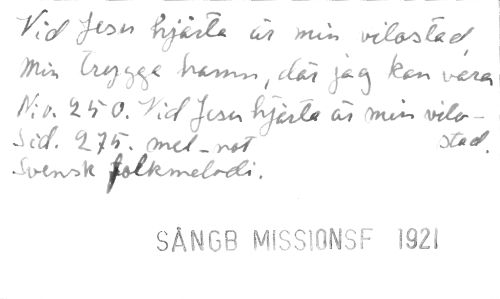 Vid Jesu hjärta är min vilostad,
Min trygga hamn, där jag kan vara
N:o. 250. Vid Jesu hjärta är min vilo-
stad.
Sid. 275. mel-not
Svensk folkmelodi.
SÅNGB MISSIONSF 1921